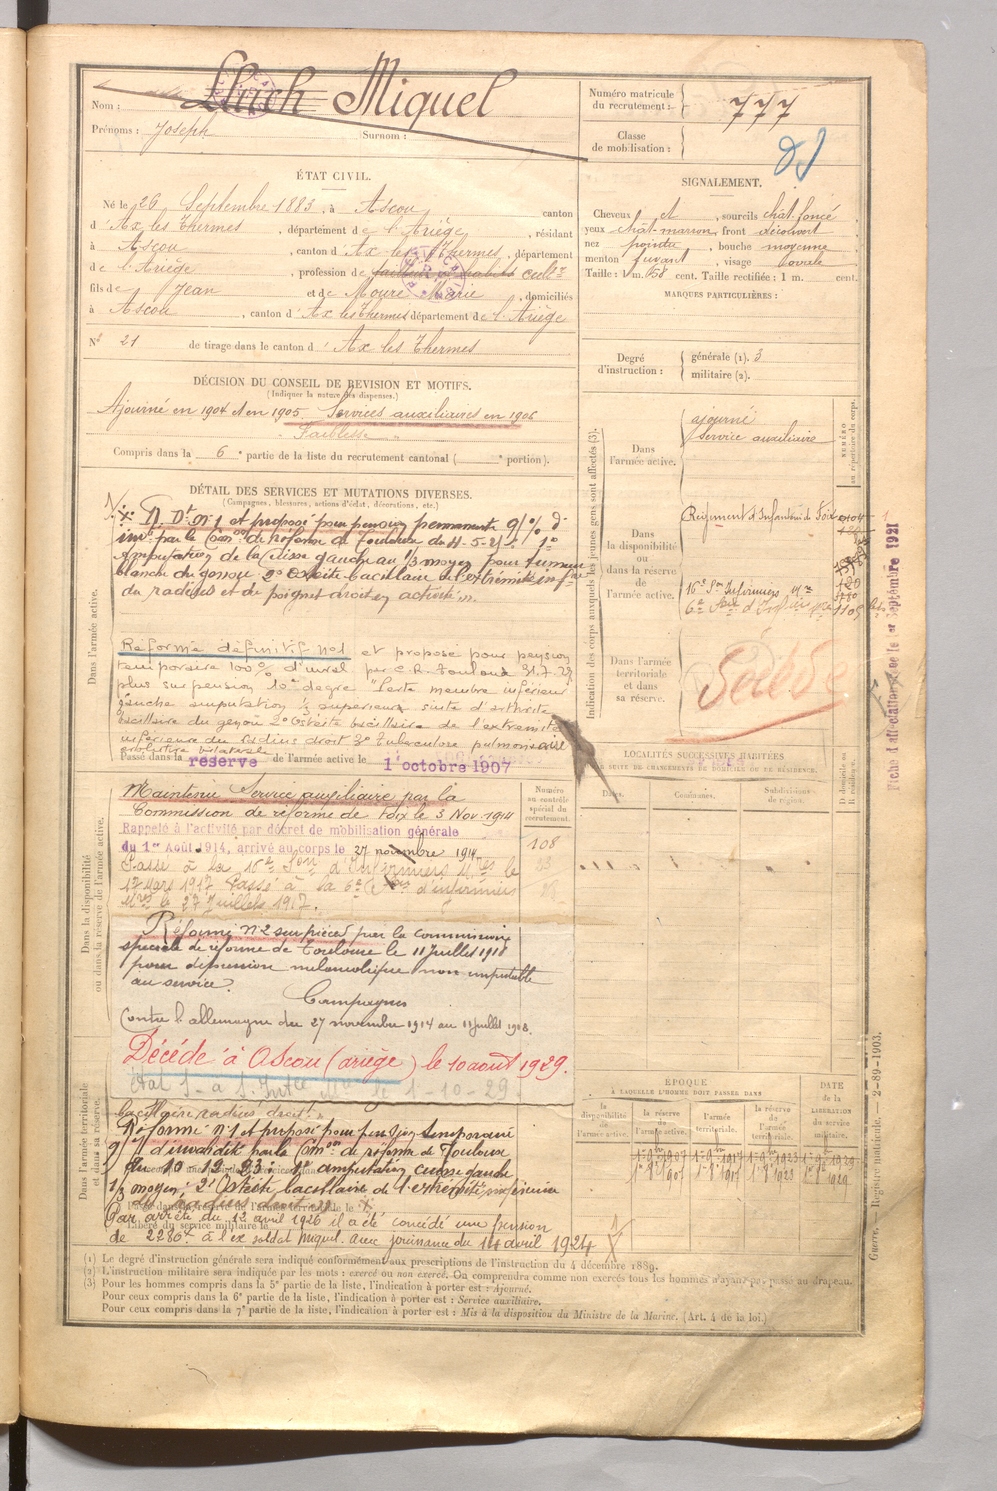 Nom : Miquel
Prénoms : Joseph Surnom :
Numéro matricule
du recrutement : 777
Classe
de mobilisation :
ÉTAT CIVIL.
Né le 26 Septembre 1883, à Ascou canton
d'Ax les Thermes, département de l'Ariège, résidant
à Ascou, canton d'Ax les Thermes, département
de l'Ariège, profession de cultr
fils de Jean et de Moure Marie, domiciliés
à Ascou, canton d'Ax les Thermes département de l'Ariège
N° 21 de tirage dans le canton d'Ax les Thermes
DÉCISION DU CONSEIL DE REVISION ET MOTIFS.
(Indiquer la nature des dispenses.)
Ajourné en 1904 et en 1905 Services auxiliaires en 1906
Faiblesse
Compris dans la 6e partie de la liste du recrutement cantonal ( e portion).
DÉTAIL DES SERVICES ET MUTATIONS DIVERSES.
(Campagnes, blessures, actions d'éclat, décorations, etc.)
et proposé pour pension permanente
par la Con de Réforme de Toulouse du 4-5-21 1°
Amputation de la cuisse gauche au 1/3 moyen pour tumeur
blanche du genou 2° Ostéite bacillaire de l'extrémité infre
du radius et du poignet droit en activité
Réforme définitif n°1 et proposé pour pension
temporaire 100% d'inval par C.R. Toulouse 31.7.
plus surpension 10e degré "Perte membre inférieur
gauche amputation supérieur suite d'arthrite
bacillaire du genou 2° Ostéite bacillaire de l'extremité
inférieure du radius droit 3° Tuberculose pulmonaire
évolutive bilatérale
Passé dans la réserve de l'armée active le 1 octobre 1907
Dans l'armée active.
Maintenu Service auxiliaire par la
Commission de réforme de Foix le 3 Nov 1914
Rappelé à l'activité par décret de mobilisation générale
du 1er Août 1914, arrivé au corps le 27 novembre 1914
Passé à la 16e Son d'Infirmiers Mres le
17 Mars 1917 Passé à la 6e Son d'infirmiers
Mres le 27 Juillet 1917.
Réformé n°2 sur pièces par la commission
spéciale de réforme de Toulouse le 11 Juillet 1918
pour dépression mélancolique non imputable
au service.
Campagnes
Contre l'allemagne du 27 novembre 1914 au 11 juillet 1918.
Décédé à Ascou (ariège) le 10 août 1929.
1-10-29
Dans la disponibilité
ou dans la réserve de l'armée active.
Numéro
au contrôle
spécial du
recrutement.
108
bacillaire radius droit.
Réformé n°1 et proposé pour pension temporaire
d'invalidité par la Con de réforme de Toulouse
du 10 12 23: 1° amputation cuisse gauche
1/3 moyen; 2° Ostéite bacillaire de l'extrémité inférieure
du radius droit
Par arrêté du 12 avril 1926 il a été concédé une pension
de 2280f à l'ex soldat Miquel. avec jouissance du 14 avril 1924
Libéré du service militaire le
Dans l'armée territoriale
et dans sa réserve.
SIGNALEMENT.
Cheveux et, sourcils chât. foncé
yeux chât-marron, front découvert
nez pointu, bouche moyenne
menton fuyant, visage ovale
Taille : 1 m. 58 cent. Taille rectifiée : 1 m. cent.
MARQUES PARTICULIÈRES :
Degré
d'instruction :
générale (1). 3
militaire (2).
Indication des corps auxquels les jeunes gens sont affectés (3).
NUMÉRO
au répertoire du corps.
Dans
l'armée active.
ajourné
Service auxiliaire
Dans
la disponibilité
ou dans la
réserve
de
l'armée active.
Régiment d'Infanterie de Foix
16e Son Infirmiers Mres
Dans l'armée
territoriale
et dans
sa réserve.
Fiche d'affectation 1er Septembre 1921
LOCALITÉS SUCCESSIVES HABITÉES
PAR SUITE DE CHANGEMENTS DE DOMICILE OU DE RÉSIDENCE.
Dates.
Communes.
Subdivisions
de région.
D domicile ou
R résidence.
ÉPOQUE
À LAQUELLE L'HOMME DOIT PASSER DANS
DATE
de la
LIBÉRATION
du service
militaire.
la
disponibilité
de
l'armée active.
la réserve
de
l'armée active.
l'armée
territoriale.
la réserve
de
l'armée
territoriale.
Guerre. — Registre matricule. — 2-89-1903.
(1) Le degré d'instruction générale sera indiqué conformément aux prescriptions de l'instruction du 4 décembre 1889.
(2) L'instruction militaire sera indiquée par les mots : exercé ou non exercé. On comprendra comme non exercés tous les hommes n'ayant pas passé au drapeau.
(3) Pour les hommes compris dans la 5e partie de la liste, l'indication à porter est : Ajourné.
Pour ceux compris dans la 6e partie de la liste, l'indication à porter est : Service auxiliaire.
Pour ceux compris dans la 7e partie de la liste, l'indication à porter est : Mis à la disposition du Ministre de la Marine. (Art. 4 de la loi.)